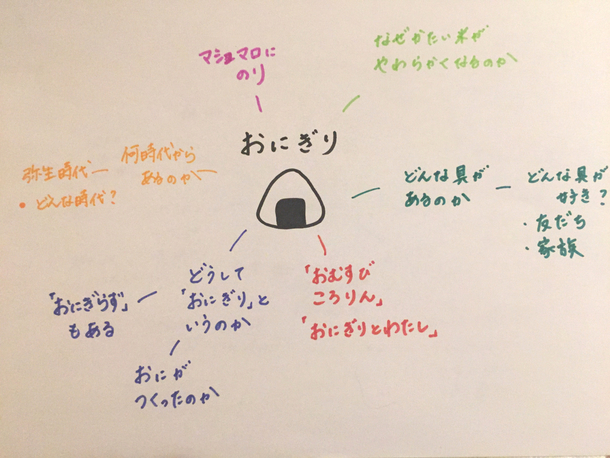 マシュマロに
のり
なぜかたい米が
やわらかくなるのか
おにぎり
何時代から
あるのか
弥生時代
• どんな時代?
どんな具が
あるのか
どんな具が
好き?
・友だち
・家族
どうして
「おにぎり」と
いうのか
「おにぎらず」
もある
おにが
つくったのか
「おむすび
ころりん」
「おにぎりとわたし」